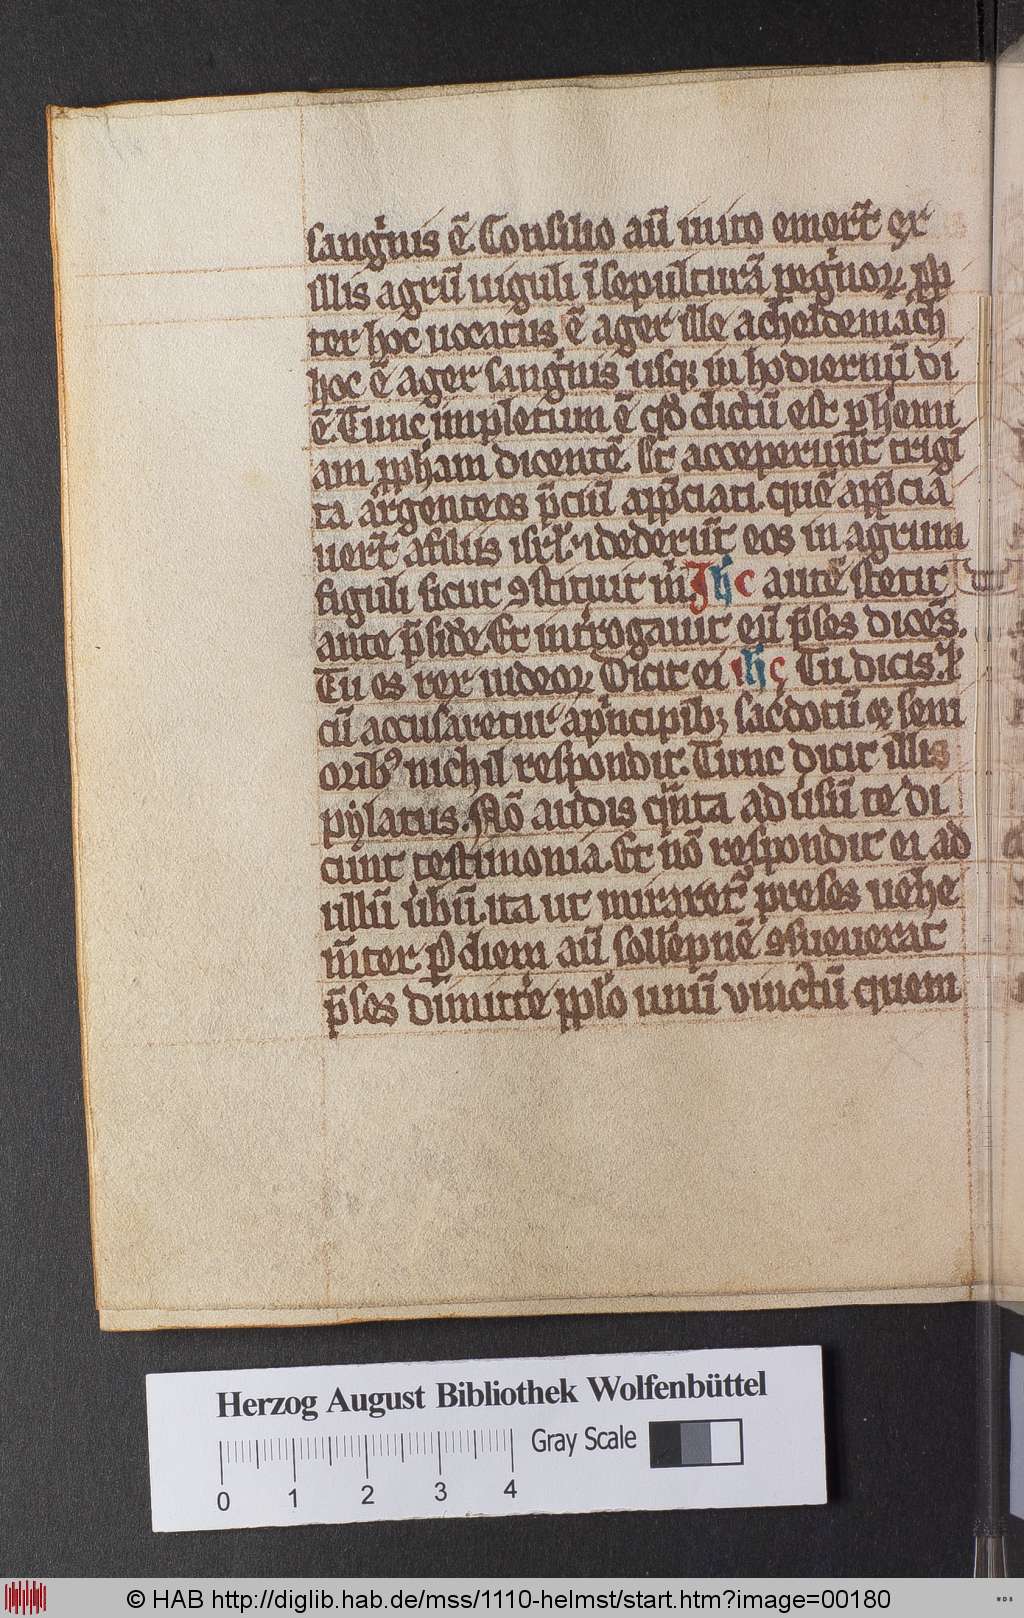 sangⁱnis ē. Consilio aū inito emerūt ex
illis agrū uiguli ī sepulturā pegⁱnoꝝ. ꝓp
ter hoc uocatus ē ager ille acheldemach
hoc ē ager sangⁱnis usqꝫ in hodiernū di
ē. Tunc impletum ē qd̄ dictū est ꝑ hiemi
am ꝓpham dicentē. Et acceperunt trigī
ta argenteos p̄ciū app̄ciati. quē app̄cia
uert̄ a filiis isrl̄. ⁊ dederūt eos in agrum
figuli sicut ꝯstituit m̄. Ih̄c autē stetit
ante p̄side. Et int̄rogauit eū p̄ses dicēs.
Tu es rex iudeoꝝ. Dicit ei ih̄c Tu dicis. ⁊
cū accusaretur a pⁱncipibꝫ sac̄dotū ⁊ seni
oribꝰ nichil respondit. Tunc dicit illis
pẏlatus. Nō audis qͣnta aduersū te di
cunt testimonia. Et nō respondit ei ad
ullū ūbū. ita ut miraret᷑ preses uehe
m̄ter. ꝑ diem aū sollēpnē ꝯsueuerat
p̄ses dimitt̄e pplo unū vinctū quem
Herzog August Bibliothek Wolfenbüttel
0 1 2 3 4 Gray Scale
© HAB http://diglib.hab.de/mss/1110-helmst/start.htm?image=00180